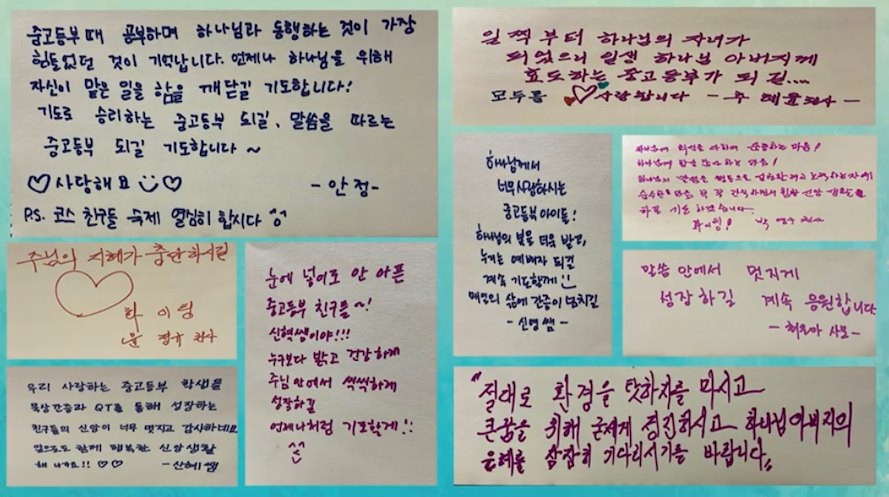 중고등부때 공부하며 하나님과 동행하는 것이 가장
힘들었던 것이 기억납니다. 언제나 하나님을 위해
자신이 맡은 일을 함을 깨닫길 기도합니다!
기도로 승리하는 중고등부 되길, 말씀을 따르는
중고등부 되길 기도합니다 ~
♡사랑해요 ♡
- 안정 -
P.S. 코스 친구들 숙제 열심히 합시다 ^^
주님의 지혜가 충만하시길
화이팅
윤정규 권사
우리 사랑하는 중고등부 학생들
묵상간증과 QT를 통해 성장하는
친구들의 신앙이 너무 멋지고 감사하네요
앞으로도 함께 행복한 신앙생활
해 나가요!! ♡♡ - 산혜쌤
눈에 넣어도 안 아픈
중고등부 친구들~!
신혁쌤이야!!!
누구보다 밝고 건강하게
주님 안에서 씩씩하게
성장하길
언제나처럼 기도할게!!
^^
일찍부터 하나님의 자녀가
되었으니 일생 하나님 아버지께
효도하는 중고등부가 되길....
모두를 ♡사랑합니다 - 주 혜윤권사 -
하나님께서
너무사랑하시는
중고등부 아이들!
하나님의 빛을 더욱 받고,
누리는 예배자 되길
계속 기도할게!!
매일의 삶에 간증이 넘치길
- 신영쌤 -
하나님께 감사하는 마음!
화이팅! 박 권사
말씀 안에서 멋지게
성장하길 계속 응원합니다
- 사모 -
"절대로 환경을 탓하지를 마시고
큰꿈을 위해 굳세게 정진하시고 하나님아버지의
은혜를 잠잠히 기다리시기를 바랍니다"